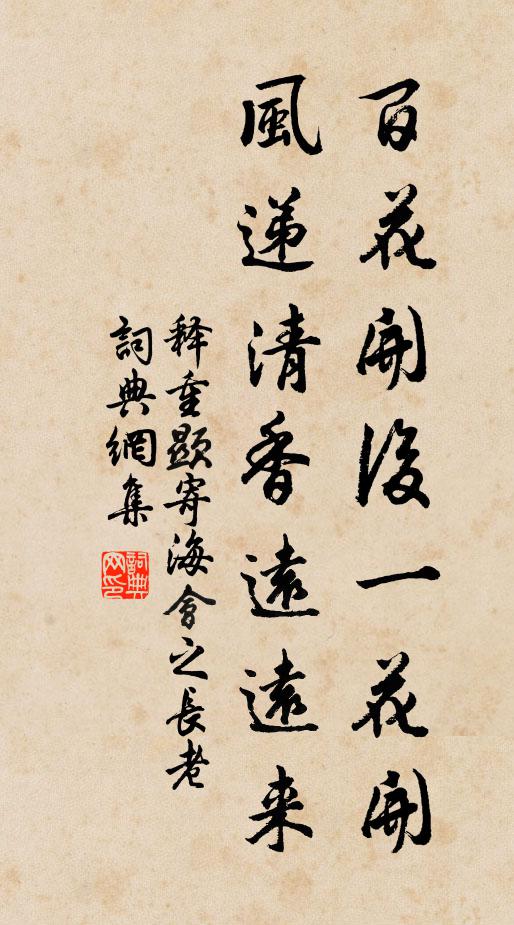 百花開後一花開
風递清香遠遠来
释重顯寄海會之長老
詞典網集
詞典网印